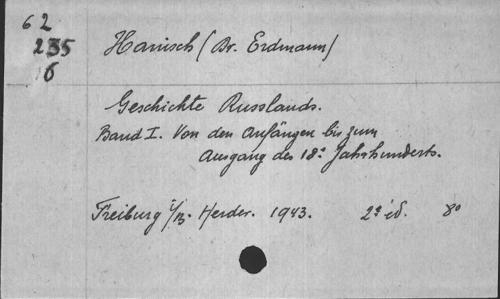 62
235
6
Hanisch (Dr. Erdmann)
Geschichte Russlands.
Band I. Von den Anfängen bis zum
Ausgang des 18e Jahrhunderts.
Freiburg i/B. Herder. 1943. 2e éd. 8o